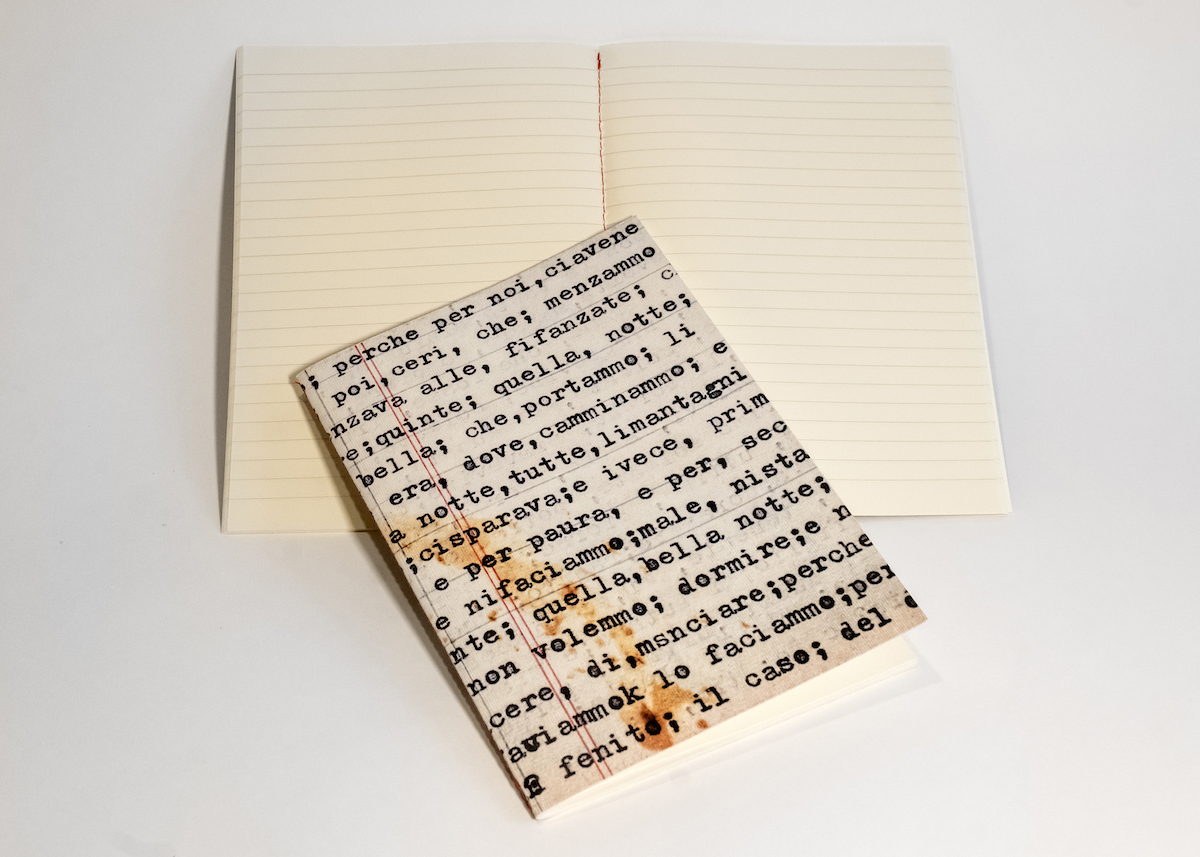 ; perche per noi,ciavene
poi,ceri, che; menzammo
nzava alle, fifanzate; c
e;quinte; quella, notte;
bella; che,portammo; li
era, dove,camminammo; e
a notte,tutte,limantagni
;cisparava;e ivece, prim
e per paura, e per, sec
e nifaciammo;male, nista
nte; quella,bella notte;
non volemmo; dormire;e n
cere, di,msnciare;perche
aviammok lo faciammo;per
fenito; il caso; del